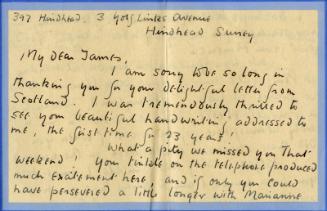 397 Hindhead. 3 Golf Links Avenue
Hindhead Surrey
My dear James,
I am sorry to be so long in
thanking you for your delightful letter from
Scotland. I was tremendously thrilled to
see your beautiful handwriting addressed to
me, the first time for 23 years!
What a pity we missed you that
weekend! your tinkle on the telephone produced
much excitement here, and if only you could
have persevered a little longer with Marianne